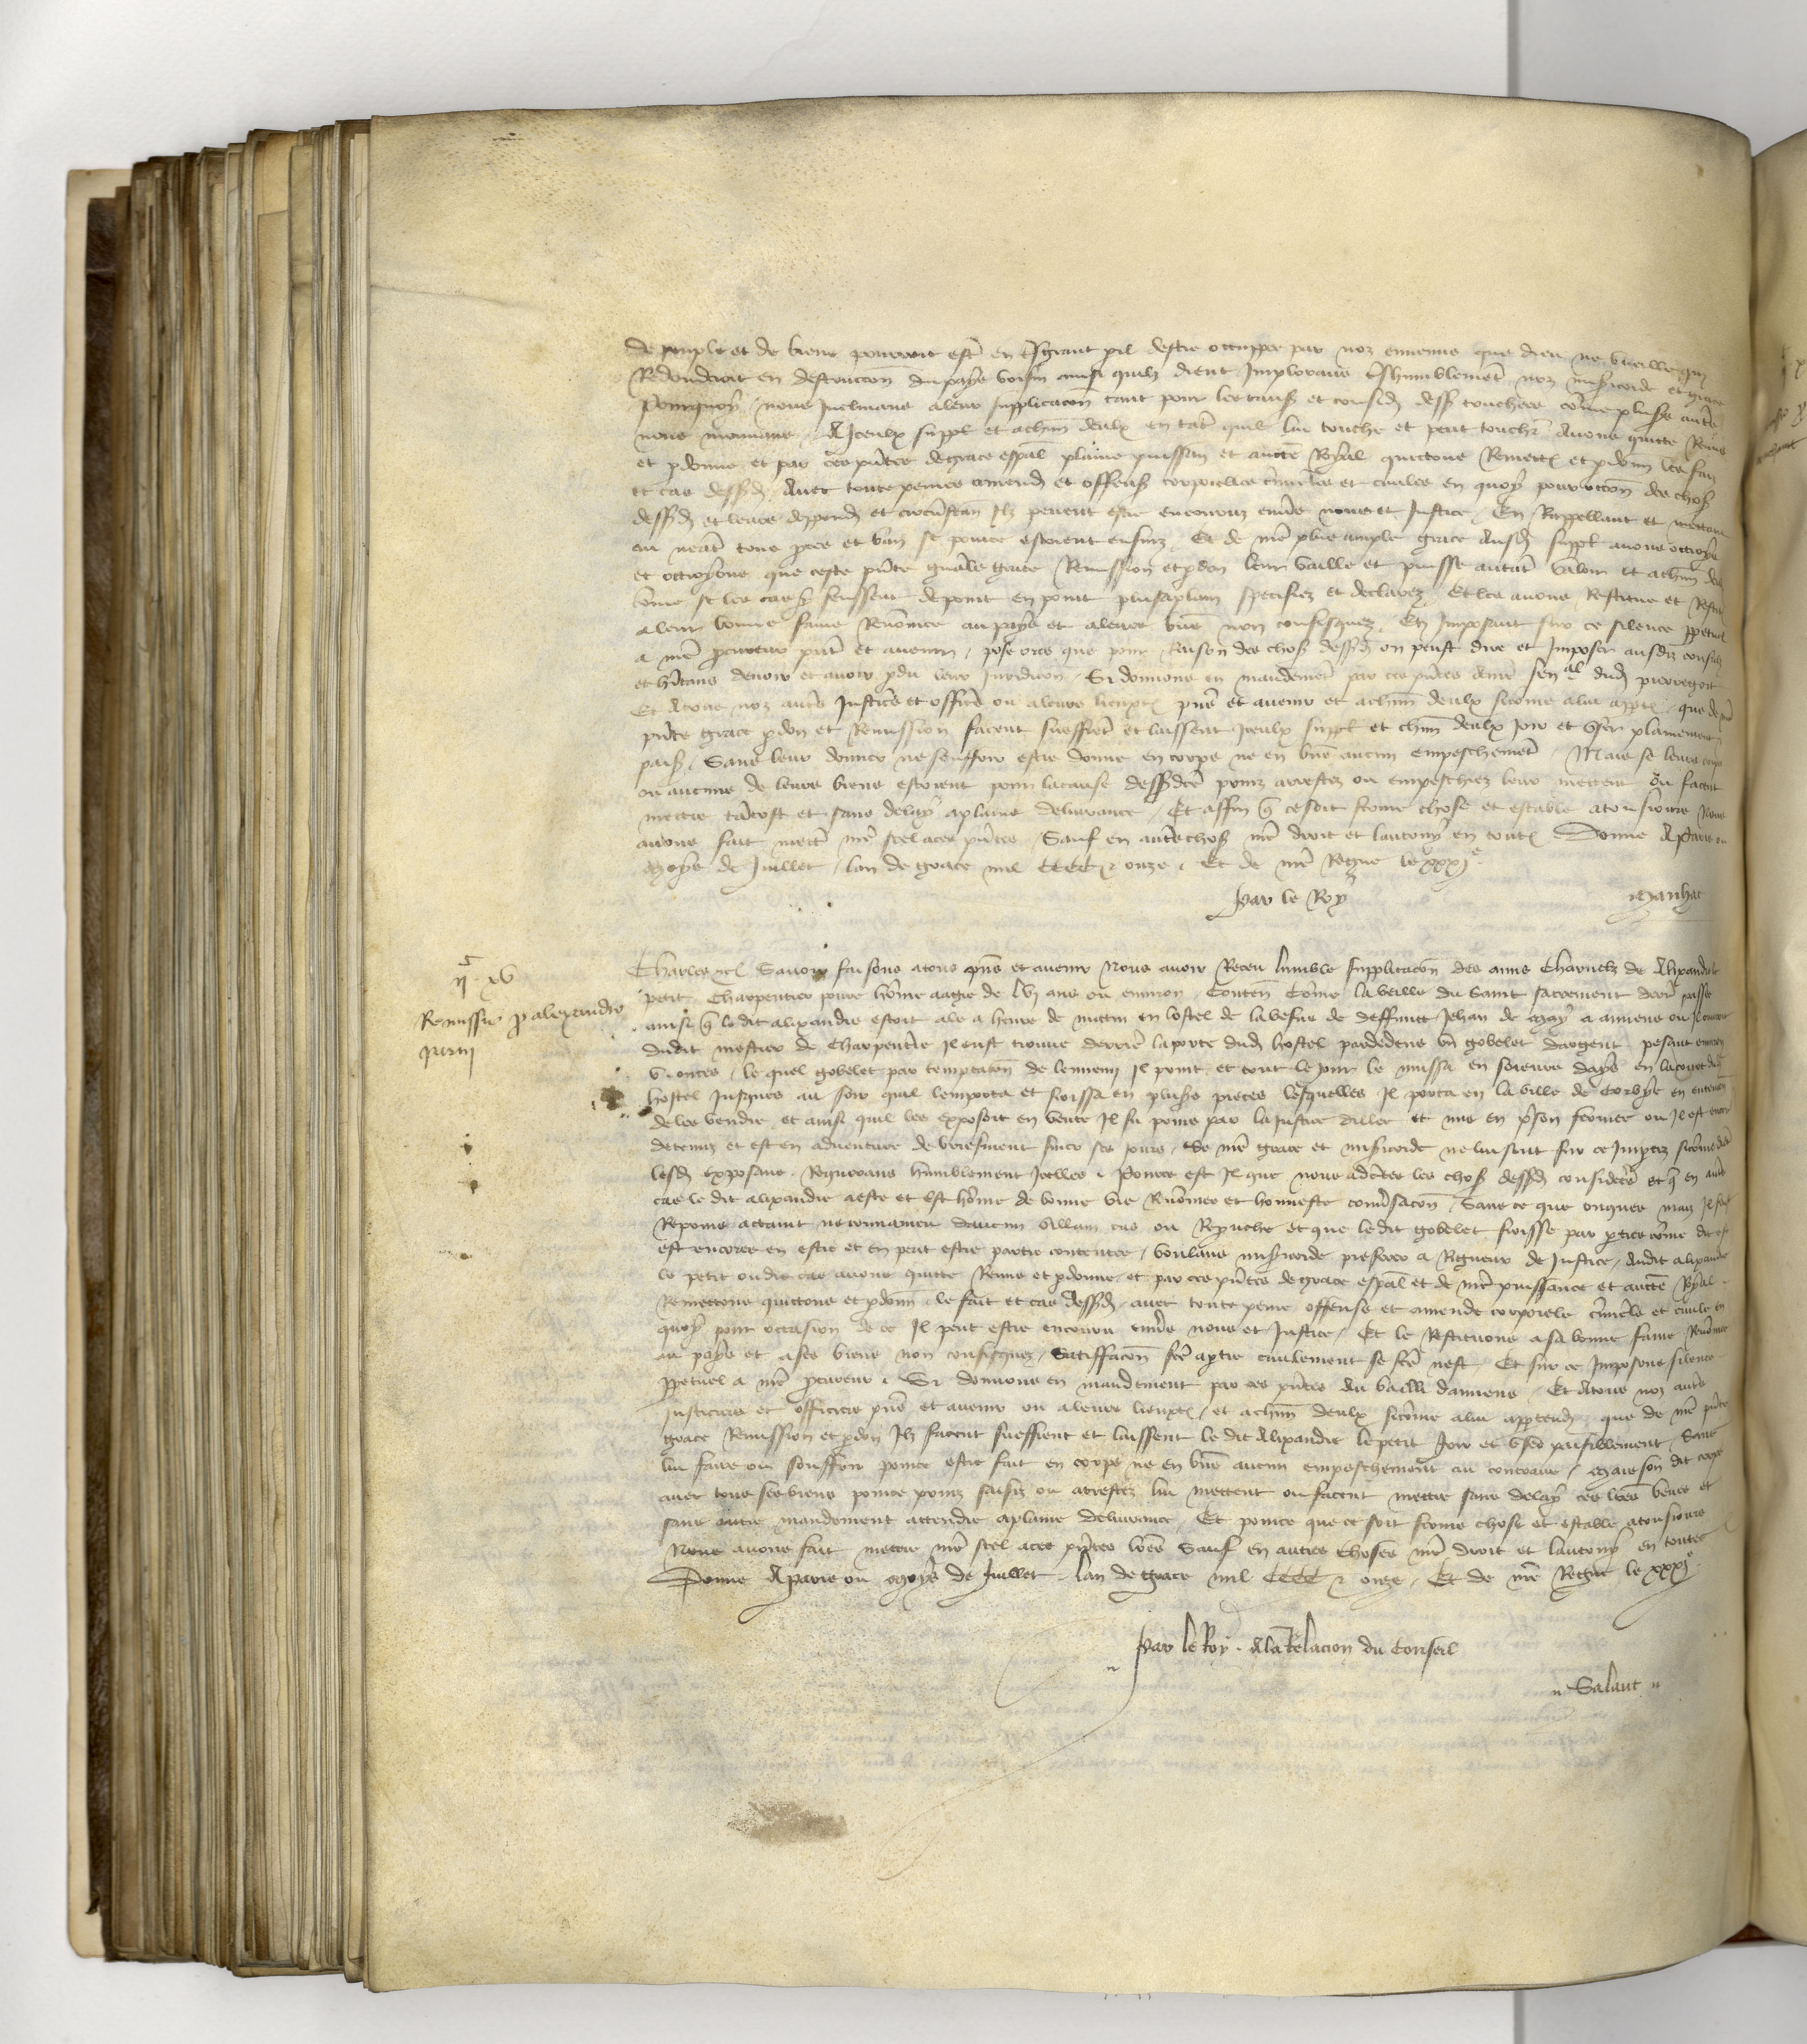 de peuple et de biens pourroit estre en tresgrant peril destre occuppee par noz ennemis que dieu ne vueille qui
Redonderoit en destruccon du pays voisin ainsi quilz dient Implorans treshumblement noz misericorde et grace
Pourquoy nous Inclinans a leur supplicacon tant pour les causes et consid dessus touchees comme pluseurs autres
nous mouvans A Iceulx suppl et a chun deulx en tant quil lui touche et peut toucher Avons quicte Remis
et pdonne et par ces pntes de grace espal plaine puissan et aucte Royal quictons Remett et pdonn les faiz
et cas dessusd Avec toute peine amende et offense corporelles criminelles et civiles en quoy pour occon des choses
dessusd et leurs deppend et circunstan Ilz pevent estre encouruz envers nous et Justice En Rappellant et mettant
au neant tous proces et ban se pource estoient ensuiz Et de nre plus ample grace Ausd suppl avons octroye
et octroyons que ceste pnte gnale grace Remission et pdon leur vaille et puisse autant valoir et a chun deulx
comme se les cas y feussent de point en point plus aplain specifiez et declarez Et les avons Restitue et Restit
a leur bonne fame Renommee au pays et a leurs biens non confisquez En Imposant sur ce silence ppetuel
a nre procureur pnt et avenir pose ores que pour Raison des choses dessusd on peust dire et Imposer ausdiz consulz
et hitans devoir et avoir pdu leur Juridicon Si donnons en mandement par ces pntes a nre senal dud pierregort
Et A tous noz autres Justiciers et officiers ou a leurs lieuxten pns et avenir et a chun deulx sicomme a lui apptendra que de nre
pnte grace pdon et Remission facent sueffrent et laissent Iceulx suppl et chun deulx joir et user plainement
paisiblement Sans leur donner ne souffrir estre donne en corps ne en biens aucun empeschement Mais se leurs corps
ou aucuns de leurs biens estoient pour la cause dessusdicte prins arrestez ou empeschiez leur mettent ou facent
mettre tantost et sans delay a plaine delivrance Et affin que ce soit ferme chose et estable a tousjours Nous
avons fait mettre nre scel a ces pntes Sauf en autres choses nre droit et lautruy en toutes Donne A Paris ou
moys de Juillet lan de grace mil CCCC et onze Et de nre Regne le xxxje
Par le Roy
Manhac
ijc xv
Remissio p alexandro
parvi
Charles etc Savoir faisons a tous pns et avenir Nous avoir Receu lumble supplicacon des amis charnelz de Alixandre le
petit Charpentier povre homme aagie de lvj ans ou environ Conten Comme la veille du Saint sacrement derr passe
ainsi que le dit alixandre estoit ale a heure de matin en lostel de la vefve de deffunct Jehan de may a amiens ou Il ouvroit
dudit mestier de Charpentier Il eust trouve derriere la porte dud hostel pardedens un gobelet dargent pesant environ
v onces le quel gobelet par temptacon de lennemi Il print et tout le jour le mussa en soieures days en la court dud
hostel Jusques au soir quil lemporta et froissa en pluseurs pieces lesquelles Il porta en la ville de Corbye en entencion
de les vendre et ainsi quil les exposoit en vente Il fu prins par la justice dilec et mis en prison fermee ou Il est encores
detenuz et est en adventure de briefment finer ses jours Se nre grace et misericorde ne lui sont sur ce Imparties sicomme dient
lesd exposans Requerans humblement Icelles Pource est Il que nous adcertes les choses dessusd considerees et que en autres
cas le dit alixandre a este et est homme de bonne vie Renommee et honneste conversacon Sans ce que onques mais Il fust
Reprins actaint ne convaincu daucun villain cas ou Reprouche et que le dit gobelet froisse par pieces comme dit est
est encores en estre et en peut estre partie contentee voulans misericorde preferer a Rigueur de Justice Audit alixandre
le petit ou dit cas avons quicte Remis et pdonne et par ces pntes de grace espal et de nre puissance et aucte Royal
Remettons quictons et pdonn le fait et cas dessusd avec toute peine offense et amende corporele criminele et civile en
quoy pour occasion de ce Il peut estre encouru envers nous et Justice Et le Restituons a sa bonne fame Renommee
au pays et a ses biens non confisquez Satiffacon fce a ptie civilement se fce nest Et sur ce Imposons silence
ppetuel a nre procureur Si donnons en mandement par ces pntes Au bailli damiens Et A tous noz autres
justiciers et officiers pns et avenir ou a leurs lieuxten et a chun deulx sicomme a lui apptendra que de nre pnte
grace Remission et pdon Ilz facent sueffrent et laissent le dit Alixandre le petit joir et user paisiblement Sans
lui faire ou souffrir pource estre fait en corps ne en biens aucun empeschement au contraire Mais son dit corps
avec tous ses biens pource prins saisiz ou arrestez lui mettent ou facent mettre sans delay ces lres veues et
sans autre mandement attendre a plaine delivrance Et pource que ce soit ferme chose et estable a tousjours
Nous avons fait mettre nre scel a ces pntes lres Sauf en autres choses nre droit et lautruy en toutes
Donne A paris ou moys de Juillet lan de grace mil CCCC et onze Et de nre Regne le xxxje
Par le Roy A la Relacion du Conseil
Salaut